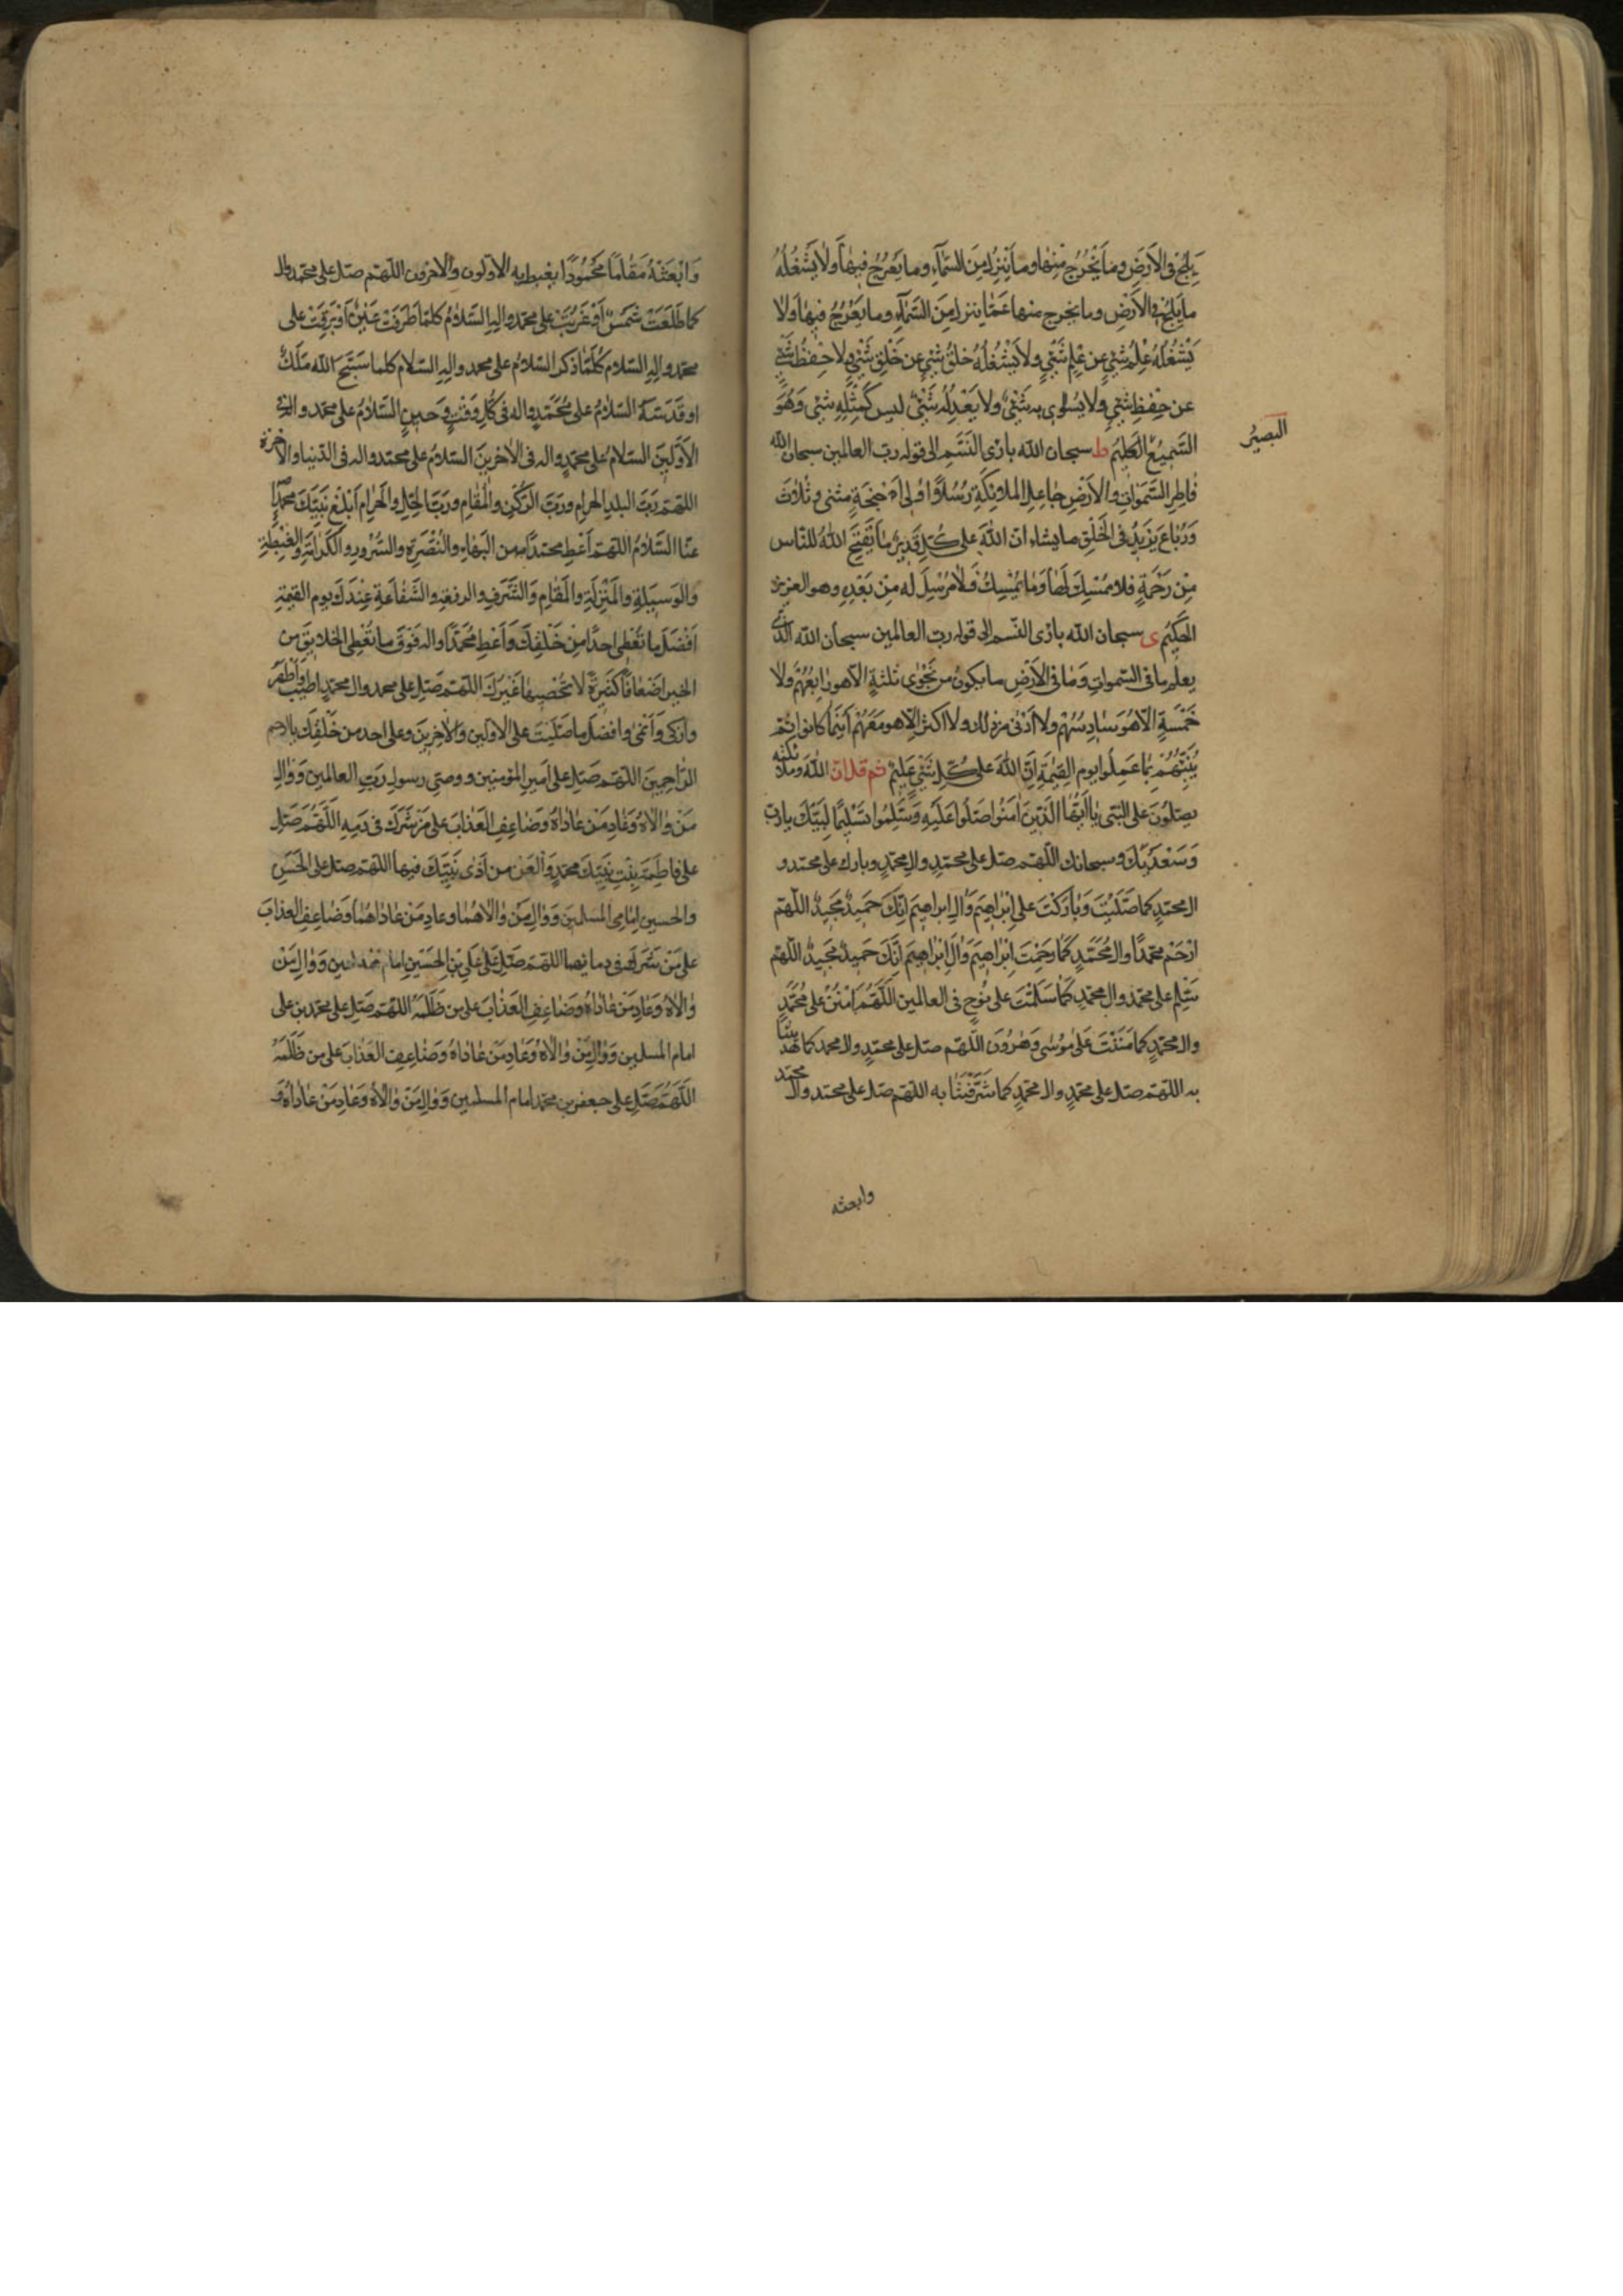 يَلِجُ فى الاَرضِ وما يَخْرُجُ مِنْها وما يَنْزِلُ مِنَ السَّمآءِ وما يَعْرُجُ فيها وَلا يَشْغَلُهُ
ما يَلِجُ فى الاَرْضِ وما يخرج منها عَمّا ينزل مِنَ السَّمآءِ وما يَعْرُجُ فيها وَلا
يَشْغَلُهُ عِلْمُ شَىْءٍ عن عِلْمِ شَىْءٍ ولا يَشْغَلُهُ خلقُ شىءٍ عن خَلْقِ شَىْءٍ ولا حِفْظُ شَىْءٍ
عن حِفْظِ شَىْءٍ ولا يُساوى به شَىْءٌ ولا يَعْدِلُهُ شَىْءٌ ليس كَمِثْلِهِ شىْء وَهُوَ
السَّميعُ العَليمُ ط سبحان الله بارئ النَّسَمِ الى قوله رب العالمين سبحان الله
البصيرُ
فاطِرِ السَّمواتِ والاَرْضِ جاعِلِ الملائِكَةِ رُسُلاً اولى اَجْنِحَةٍ مثنى وثُلاثَ
وَرُباعَ يَزيدُ فى الخَلْقِ ما يشاء ان اللهَ على كُلِّ شَىْءٍ قَديرٌ ما يَفْتَحِ اللهُ للناس
مِنْ رَحْمَةٍ فلا مُمْسِكَ لَها وَما يُمْسِكْ فَلا مُرْسِلَ له مِنْ بَعْدِهِ وهو العزيز
الحَكيمُ ى سبحان الله بارئ النّسم الى قوله رب العالمين سبحان الله الّذى
يعلم ما فى السّموات وَما فى الاَرْضِ ما يكونُ من نَجْوى ثلثةٍ الّا هو رابِعُهُمْ ولا
خَمْسَةٍ الّا هُوَ سادِسُهُمْ ولا اَدْنى من ذلك ولا اكثر الّا هو مَعَهُمْ اَيْنَما كانوا ثُمّ
يُنَبِّئُهُمْ بِما عَمِلُوا يوم القِيمَةِ اِنَّ اللهَ على كُلِّ شَىْءٍ عَليمٌ ثم قل انّ اللهَ وملائكته
يصلّونَ على النّبى يا اَيُّهَا الَّذينَ امَنُوا صَلُّوا عَلَيْهِ وَسَلِّمُوا تَسْليمًا لَبَّيْكَ يا ربّ
وَسَعْدَيْكَ وسبحانك اللّهم صل على محمّدٍ وال محمّدٍ وبارك على محمّد و
ال محمّدٍ كما صَلَّيْتَ وَبارَكْتَ على اِبْراهيمَ وَالِ ابراهيمَ اِنّكَ حَميدٌ مَجيدٌ اللّهمّ
ارْحَمْ محمّدًا وال مُحَمَّدٍ كَما رَحِمْتَ اِبْراهيمَ وَالَ اِبْراهيمَ اِنَّكَ حَميدٌ مَجيدٌ اللّهمّ
سَلّم على محمّد وال محمّدٍ كَما سَلَّمْتَ على نُوحٍ فى العالمين اللَّهُمَّ امْنُنْ على مُحَمَّدٍ
وال محمّدٍ كما مَنَنْتَ عَلى مُوسى وَهرُونَ اللّهم صل على محمّدٍ وال محمد كما هديتنا
به اللّهم صل على محمّدٍ وال محمّدٍ كما شَرَّفْتَنا به اللهم صل على محمد وال محمّد
وابعثه
وَابْعَثْهُ مَقامًا مَحْمُودًا يغبطه به الاوّلون والاخرون اللّهم صل على محمّد وال
كما طَلَعَتْ شَمْسٌ اَوْ غَرَبَتْ على محمّد والهِ السَّلامُ كلمّا طَرَفَتْ عَيْنٌ اَوْ بَرَقَتْ على
محمّد والهِ السّلام كُلَّما ذكر السّلامُ على محمد والهِ السّلام كلما سَبَّحَ اللهَ مَلَكٌ
او قَدَّسَهُ السّلامُ على مُحَمَّدٍ واله فى كُلِّ وَقْتٍ وَحينٍ السَّلامُ على محمّد واله فى
الاَوَّلينَ السّلامُ على محمّدٍ واله فى الاخرينَ السّلامُ على محمّد واله فى الدّنيا والاخرة
اللّهمّ رَبَّ البلدِ الحرامِ وربَّ الرُّكْنِ والمَقامِ وربَّ الحِلِّ والحَرامِ اَبْلِغْ نَبِيَّكَ محمدًا
عنّا السَّلامُ اللّهمّ اَعْطِ محمّدًا من البَهاءِ والنَّضْرَةِ والسُّرورِ والكَرامَةِ والغِبْطَةِ
والوَسيلَةِ والمَنْزِلَةِ والمَقامِ وَالشَّرَفِ والرِفعَةِ والشَّفاعَةِ عِنْدَكَ يوم القيمة
اَفْضَلَ ما تُعْطى احدًا مِنْ خَلْقِكَ وَاَعْطِ مُحَمَّدًا واله فَوْقَ ما تُعْطِى الخلايق من
الخير اَضْعافًا كَثيرَةً لا يُحْصيها غَيْرُكَ اللّهمّ صَلّ على محمد وال محمّدٍ اطيب وَاَطْهَرَ
وازكى وَاَنْمى وافضل ما صَلَّيْتَ على الاوّلين وَالاخِرينَ وعلى احد من خَلْقِكَ يا ارحم
الرّاحِمينَ اللّهمّ صَلِّ على اَميرِ المُؤمنين ووصىّ رسول رَبِّ العالمين وَوالِ
مَنْ والاهُ وَعادِ مَنْ عاداهُ وَضاعِفِ العَذابَ على مَنْ شَرَكَ فى دَمِهِ اَللَّهُمَّ صَلِّ
على فاطِمَةَ بِنْتِ نَبِيِّكَ محمّدٍ وَالْعَن من اَذى نَبِيَّكَ فيها اللّهم صلّ على الحَسَنِ
والحسين اِمامىِ المُسلمينَ وَوالِ مَنْ والاهُما وعادِ مَنْ عاداهُما وَضاعِفِ العذابَ
على مَنْ شَرَكَ فى دمائهما اللّهمّ صَلِّ عَلى عَلىّ بْنِ الحُسَيْنِ اِمام المسلمين وَوالِ مَنْ
والاهُ وَعادِ مَنْ عاداهُ وَضاعِفِ العَذابَ على من ظَلَمَهُ اللّهمّ صَلِّ على محمّد بن على
امام المسلمين وَوالِ مَنْ والاهُ وَعادِ مَنْ عاداهُ وَضاعِفِ العَذابَ على من ظَلَمَهُ
اللَّهُمَّ صَلِّ على جعفر بن محمّد امام المسلمين وَوالِ مَنْ والاهُ وَعادِ مَنْ عاداهُ وَ